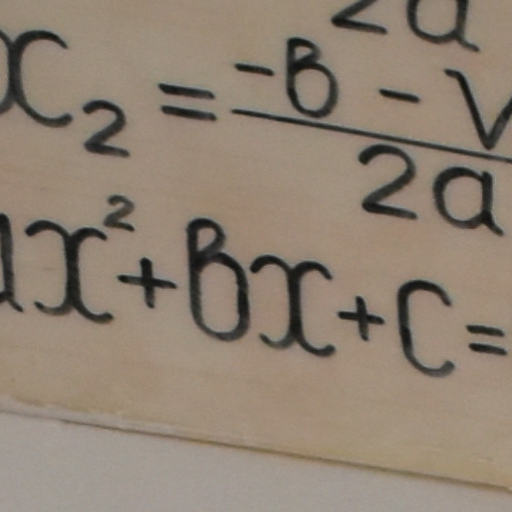 2a
x₂ = -в - √
2a
ax² + вx + c =